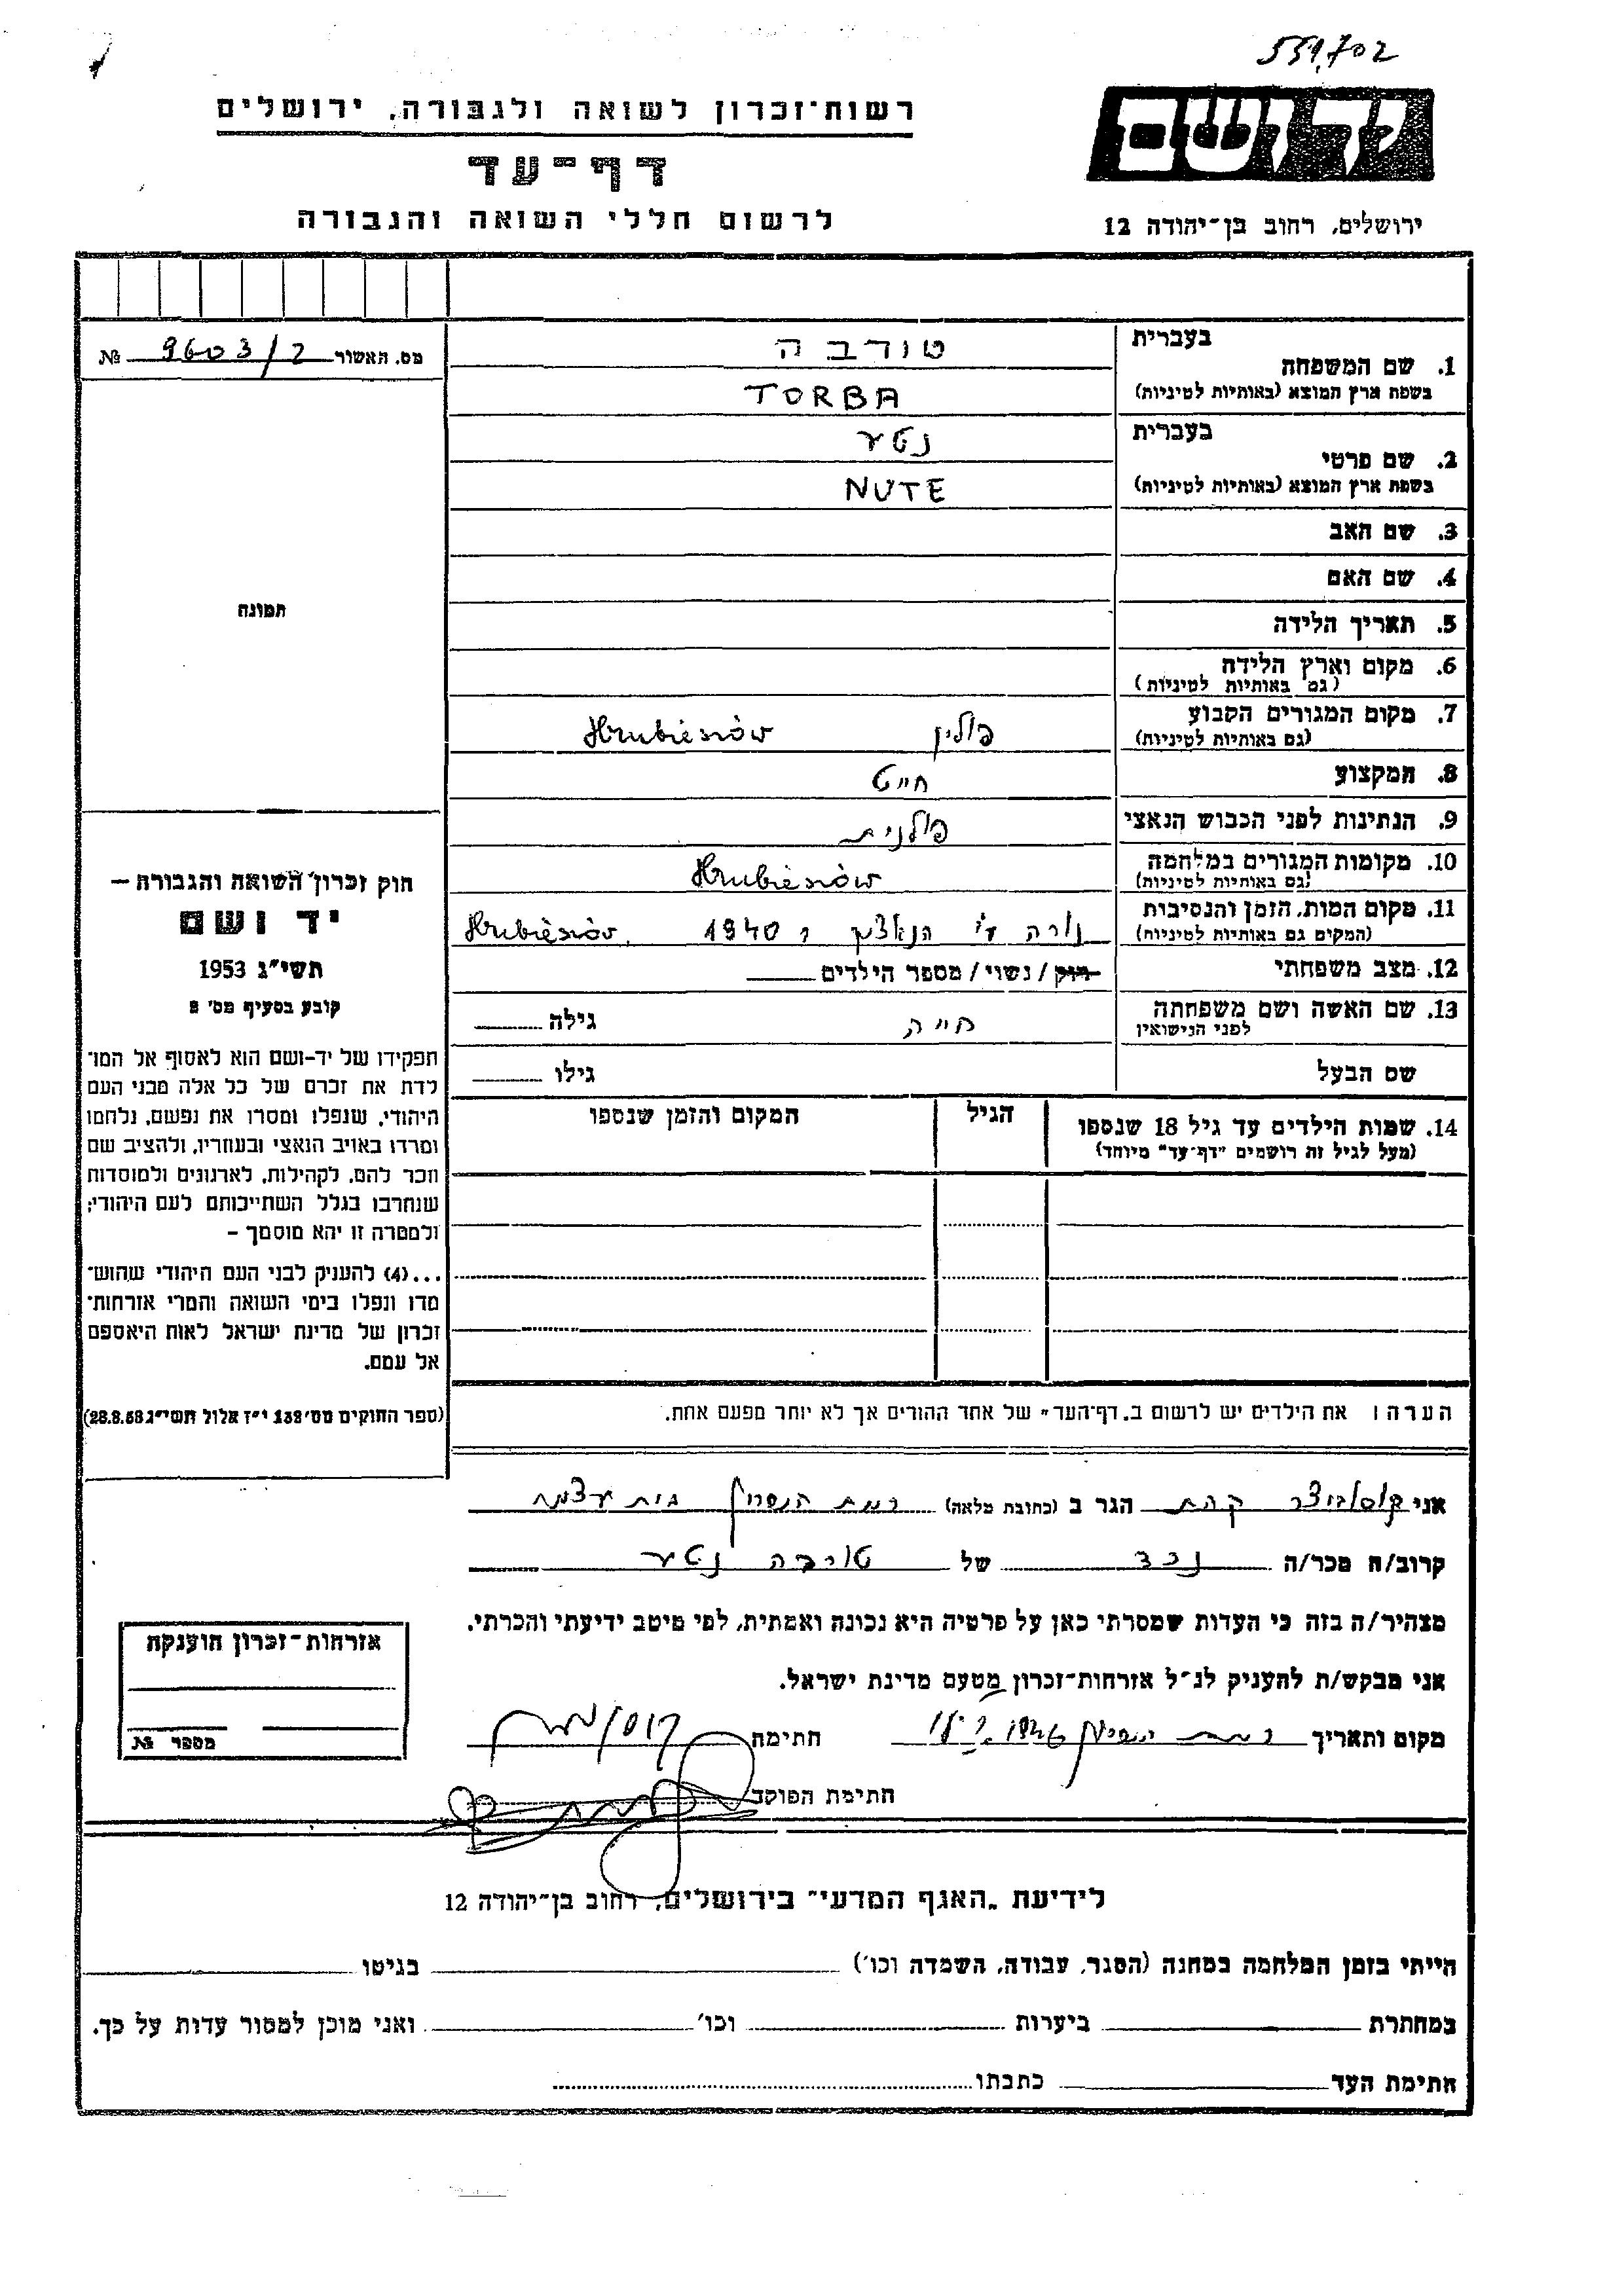 559,702
רשות־זכרון לשואה ולגבורה, ירושלים
יד ושם
דף־עד
לרשום חללי השואה והגבורה
ירושלים, רחוב בן־יהודה 12
מס. האשור 9603/2 №
1. שם המשפחה
בעברית
טורבה
בשפת ארץ המוצא (באותיות לטיניות)
TORBA
2. שם פרטי
בעברית
נטע
בשפת ארץ המוצא (באותיות לטיניות)
NUTE
3. שם האב
4. שם האם
5. תאריך הלידה
6. מקום וארץ הלידה
(גם באותיות לטיניות)
7. מקום המגורים הקבוע
(גם באותיות לטיניות)
פולין Hrubiesów
8. המקצוע
חייט
9. הנתינות לפני הכבוש הנאצי
פולנית
10. מקומות המגורים במלחמה
(גם באותיות לטיניות)
Hrubiesów
11. מקום המות, הזמן והנסיבות
(המקום גם באותיות לטיניות)
נורה ע"י הנאצים ב 1940 Hrubiesów.
12. מצב משפחתי
רווק / נשוי / מספר הילדים
13. שם האשה ושם משפחתה
לפני הנישואין
חייה
גילה
שם הבעל
גילו
14. שמות הילדים עד גיל 18 שנספו
(מעל לגיל זה רושמים "דף־עד" מיוחד)
הגיל
המקום והזמן שנספו
תמונה
חוק זכרון השואה והגבורה —
יד ושם
תשי״ג 1953
קובע בסעיף מס' 2
תפקידו של יד־ושם הוא לאסוף אל המו־
לדת את זכרם של כל אלה מבני העם
היהודי, שנפלו ומסרו את נפשם, נלחמו
ומרדו באויב הנאצי ובעוזריו, ולהציב שם
וזכר להם, לקהילות, לארגונים ולמוסדות
שנחרבו בגלל השתייכותם לעם היהודי;
ולמטרה זו יהא מוסמך —
...(4) להעניק לבני העם היהודי שהוש־
מדו ונפלו בימי השואה והמרי אזרחות־
זכרון של מדינת ישראל לאות היאספם
אל עמם.
(ספר החוקים מס' 132 י״ז אלול תשי״ג 28.8.53)
הערה: את הילדים יש לרשום ב„דף־העד״ של אחד ההורים אך לא יותר מפעם אחת.
אני קהת הגר ב (כתובת מלאה) רמת השרון
קרוב/ה מכר/ה נכד של טורבה נטע
מצהיר/ה בזה כי העדות שמסרתי כאן על פרטיה היא נכונה ואמתית, לפי מיטב ידיעתי והכרתי.
אני מבקש/ת להעניק לנ״ל אזרחות־זכרון מטעם מדינת ישראל.
מקום ותאריך רמת השרון
חתימה
חתימת הפוקד
אזרחות־זכרון הוענקה
מספר №
לידיעת „האגף המדעי״ בירושלים, רחוב בן־יהודה 12
הייתי בזמן המלחמה במחנה (הסגר, עבודה, השמדה וכו') בגיטו
במחתרת ביערות וכו' ואני מוכן למסור עדות על כך.
חתימת העד כתבתו